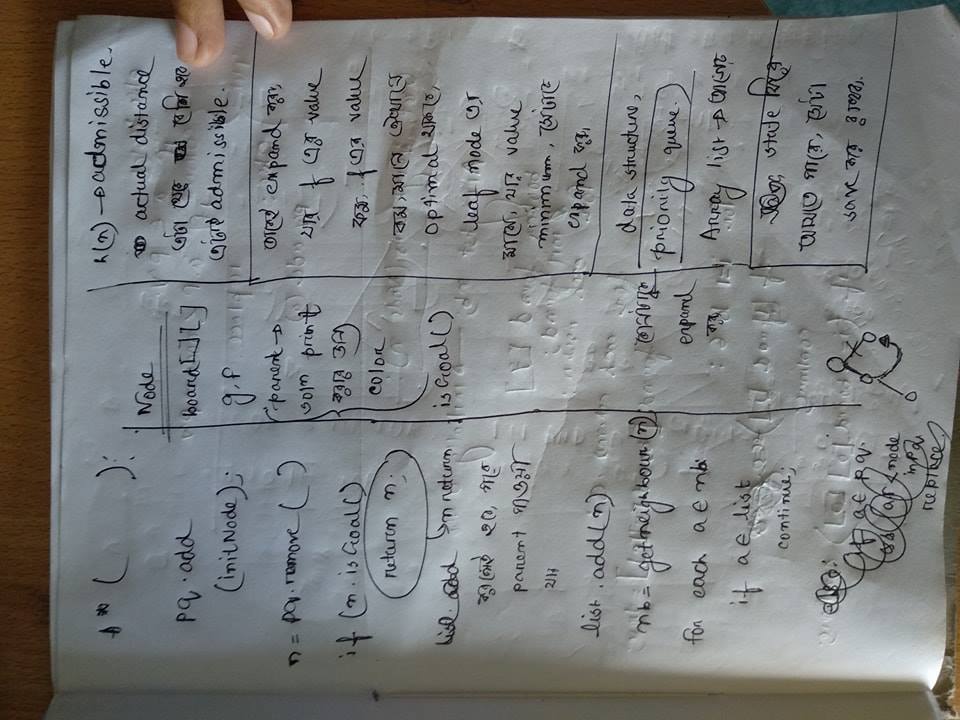 A* ( ):
pq.add
(initNode);
n = pq.remove ( )
if (n.isGoal()
return n;
list.add → n return
করলেই হবে, পরে
parent পাওয়া
যায়
list.add(n)
nb = getneighbour(n)
for each a ∈ nb:
if a ∈ list
continue;
else:
if a ∈ pq.
node
in pq
replace
Node
board[ ][ ]
g, f
parent →
soln print
করার জন্য
color
isGoal()
expand
করব
h(n) → admissible.
actual distance
এটা থেকে বেশি হবে
এটাই admissible.
তাকেই expand করব,
যার f এর value
কম, f এর value
কম, মানে, ওখানে
optimal থাকবে,
leaf node এর
মাঝে, যার value
minimum, সেটাকে
expand করব,
data structure,
priority queue.
Array list →
state ফিরে
আসতে পারে, সেটা
save করে রাখব.